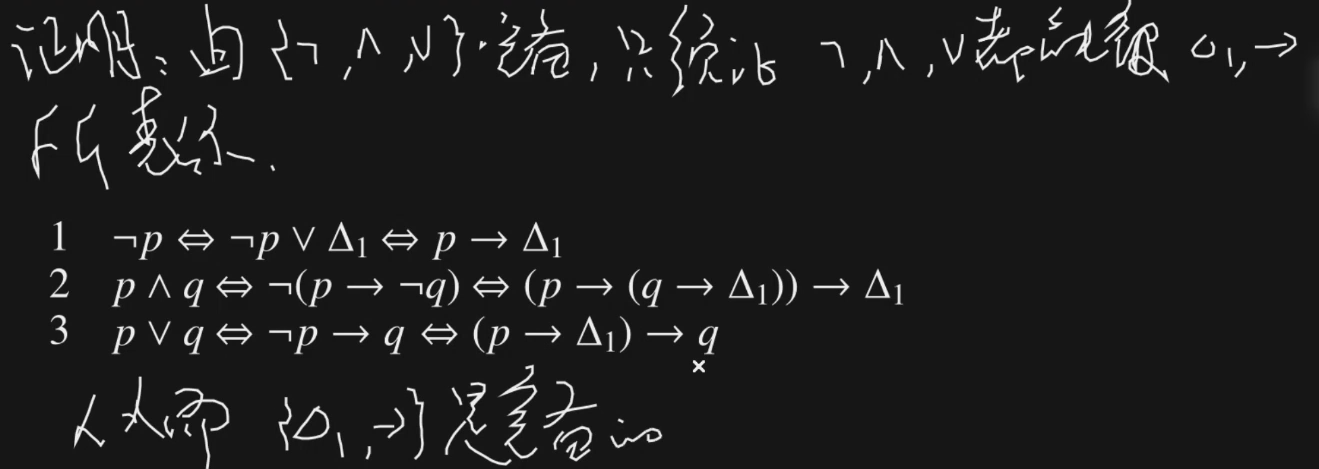 证明：由{¬,∧,∨}完备，只须证 ¬,∧,∨都能被 Δ₁,→
所表示.
1 ¬p ⇔ ¬p ∨ Δ₁ ⇔ p → Δ₁
2 p ∧ q ⇔ ¬(p → ¬q) ⇔ (p → (q → Δ₁)) → Δ₁
3 p ∨ q ⇔ ¬p → q ⇔ (p → Δ₁) → q
从而 {Δ₁,→}是完备的